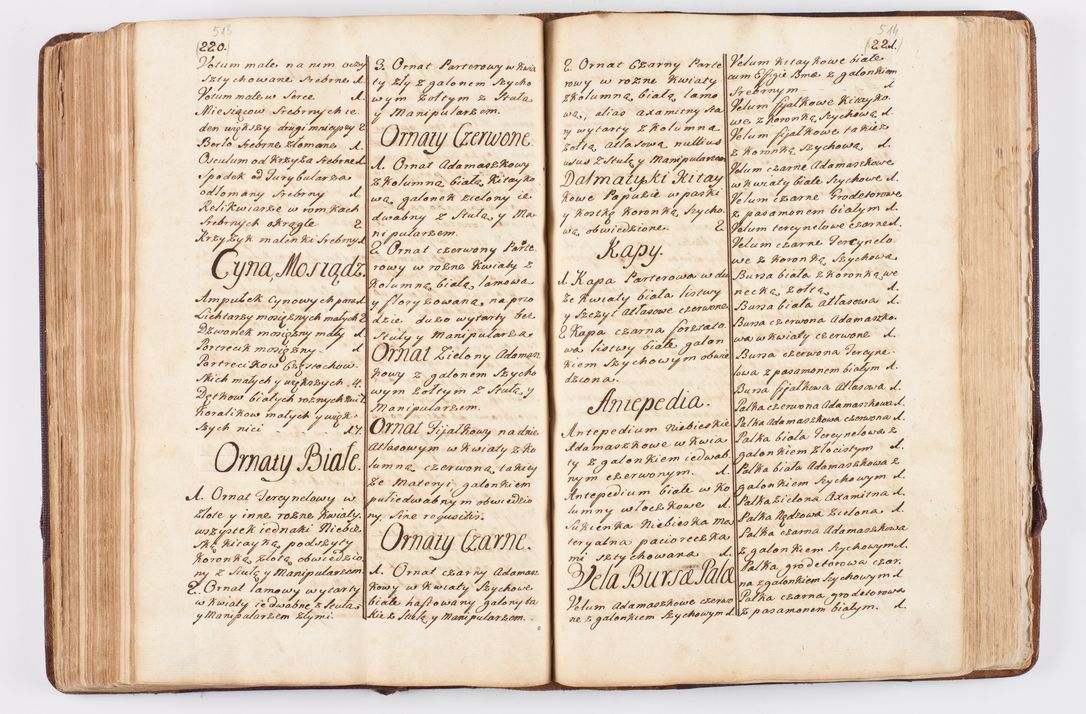 513
(220.)
Votum małe na nim oczy
Sztychowane Srebrne 1.
Votum małe w Serce 1.
Miesiącow Srebrnych ie-
den większy drugi mnieyszy 2
Berło Srebrne złomane 1.
Osculum od Krzyża Srebrne 1.
Spodek od Turybularza
odłomany Srebrny 1.
Relikwiarze w romkach
Srebrnych okrągłe 2.
Krzyżyk malenki Srebrny 1.
Cyna, Mosiądz.
Ampułek Cynowych para 1
Lichtarzy mosiężnych małych 2
Dzwonek mosiężny mały 1
Portrecik mosiężny 1
Portrecikow Częstochow-
skich małych y większych 4.
Dętkow białych rożnych
Koralikow małych y więk-
szych nici 17.
Ornaty Białe.
1. Ornat Tercynelowy w
złote y inne rożne Kwiaty
wszystek iednaki Niebies-
ką kitayką podszyty
Koronką złotą obwiedzio-
ny z Stułą y Manipularzem.
2. Ornat lamowy wytarty
w Kwiaty iedwabne z Stułą
y Manipularzem złymi.
3. Ornat Parterowy w Kwia-
ty zły z galonem Szycho-
wym żołtym z Stułą
y Manipularzem.
Ornaty Czerwone.
1. Ornat Adamaszkowy
z Kolumną białą Kitayko-
wą, galonek zielony ie-
dwabny z Stułą y Ma-
nipularzem.
2. Ornat czerwony Parte-
rowy w rożne Kwiaty z
Kolumną białą, lamową
y floryzowaną, na prz-
dzie dużo wytarty bez
Stuły y Manipularza.
Ornat Zielony Adamasz-
kowy z galonem Szycho-
wym żołtym z Stułą y
Manipularzem.
Ornat Fijałkowy na dnie
Atłasowym w Kwiaty z Ko-
lumną czerwoną, takiey
że Materyi galonkiem
pułiedwabnym obwiedzio-
ny, sine requisitis.
Ornaty Czarne.
1. Ornat czarny Adamasz-
kowy w Kwiaty Szychowe
białe haftowany galony ta-
kie z Stułą y Manipularzem.
514
(221.)
2. Ornat Czarny Parte-
rowy w rożne Kwiaty
z Kolumną białą lamo-
wą, alias axamitny sta-
ry wytarty z Kolumną
żołtą Atłasową nullius
usus z Stułą y Manipularzem
Dalmatyki Kitay-
kowe Papuzie w paski
y kostkę Koronką, Szycho-
wą obwiedzione. 2.
Kapy.
1. Kapa Parterowa w du-
że Kwiaty biała listwy
y Szczyt Atłasowe czerwone
2. Kapa czarna forsztato-
wa listwy białe galon-
kiem Szychowym obwie-
dzona.
Antepedia.
Antepedium Niebieskie
Adamaszkowe w Kwia-
ty z galonkiem iedwab-
nym czerwonym. 1.
Antepedium białe w Ko-
lumny włoczkowe 1.
Sukienka Niebieska ma-
teryalna pacioreczka-
mi sztychowana 1.
Vela Bursæ Palæ
Velum Adamaszkowe czerwo-
ne z galonkiem Szychowym 1
Velum Kitaykowe białe
cum Effigie Bmæ z galonkiem
Srebrnym 1
Velum fijałkowe Kitayko-
we, z Koronką Szychową 1
Velum fijałkowe takież
z Koronką Szychową 1
Velum czarne Adamaszkowe
w Kwiaty białe Szychowe 1.
Velum czarne Grodetorowe
z pasamonem białym 1.
Velum tercynelowe czarne 1.
Velum czarne Tercynelo-
we z Koronką Szychową 1.
Bursa biała z Koronką we-
necką złotą 1.
Bursa biała Atłasowa 1.
Bursa czerwona Adamaszko-
wa w Kwiaty czerwone 1.
Bursa czerwona Tercyne-
lowa z pasamonem białym 1.
Bursa fijałkowa Atłasowa 1.
Palka czerwona Adamaszkowa 1.
Palka Adamaszkowa czerwona 1.
Palka biała Tercynelowa z
galonkiem złocistym 1.
Palka biała Adamaszkowa z
galonkiem Szychowym 1.
Palka Zielona Axamitna 1.
Palka Rądzowa Zielona 1.
Palka czarna Adamaszkowa
z galonkiem Szychowym 1.
Palka grodetorowa czar-
na z galonkiem Szychowym 1.
Palka czarna grodetorowa
z pasamonem białym. 1.